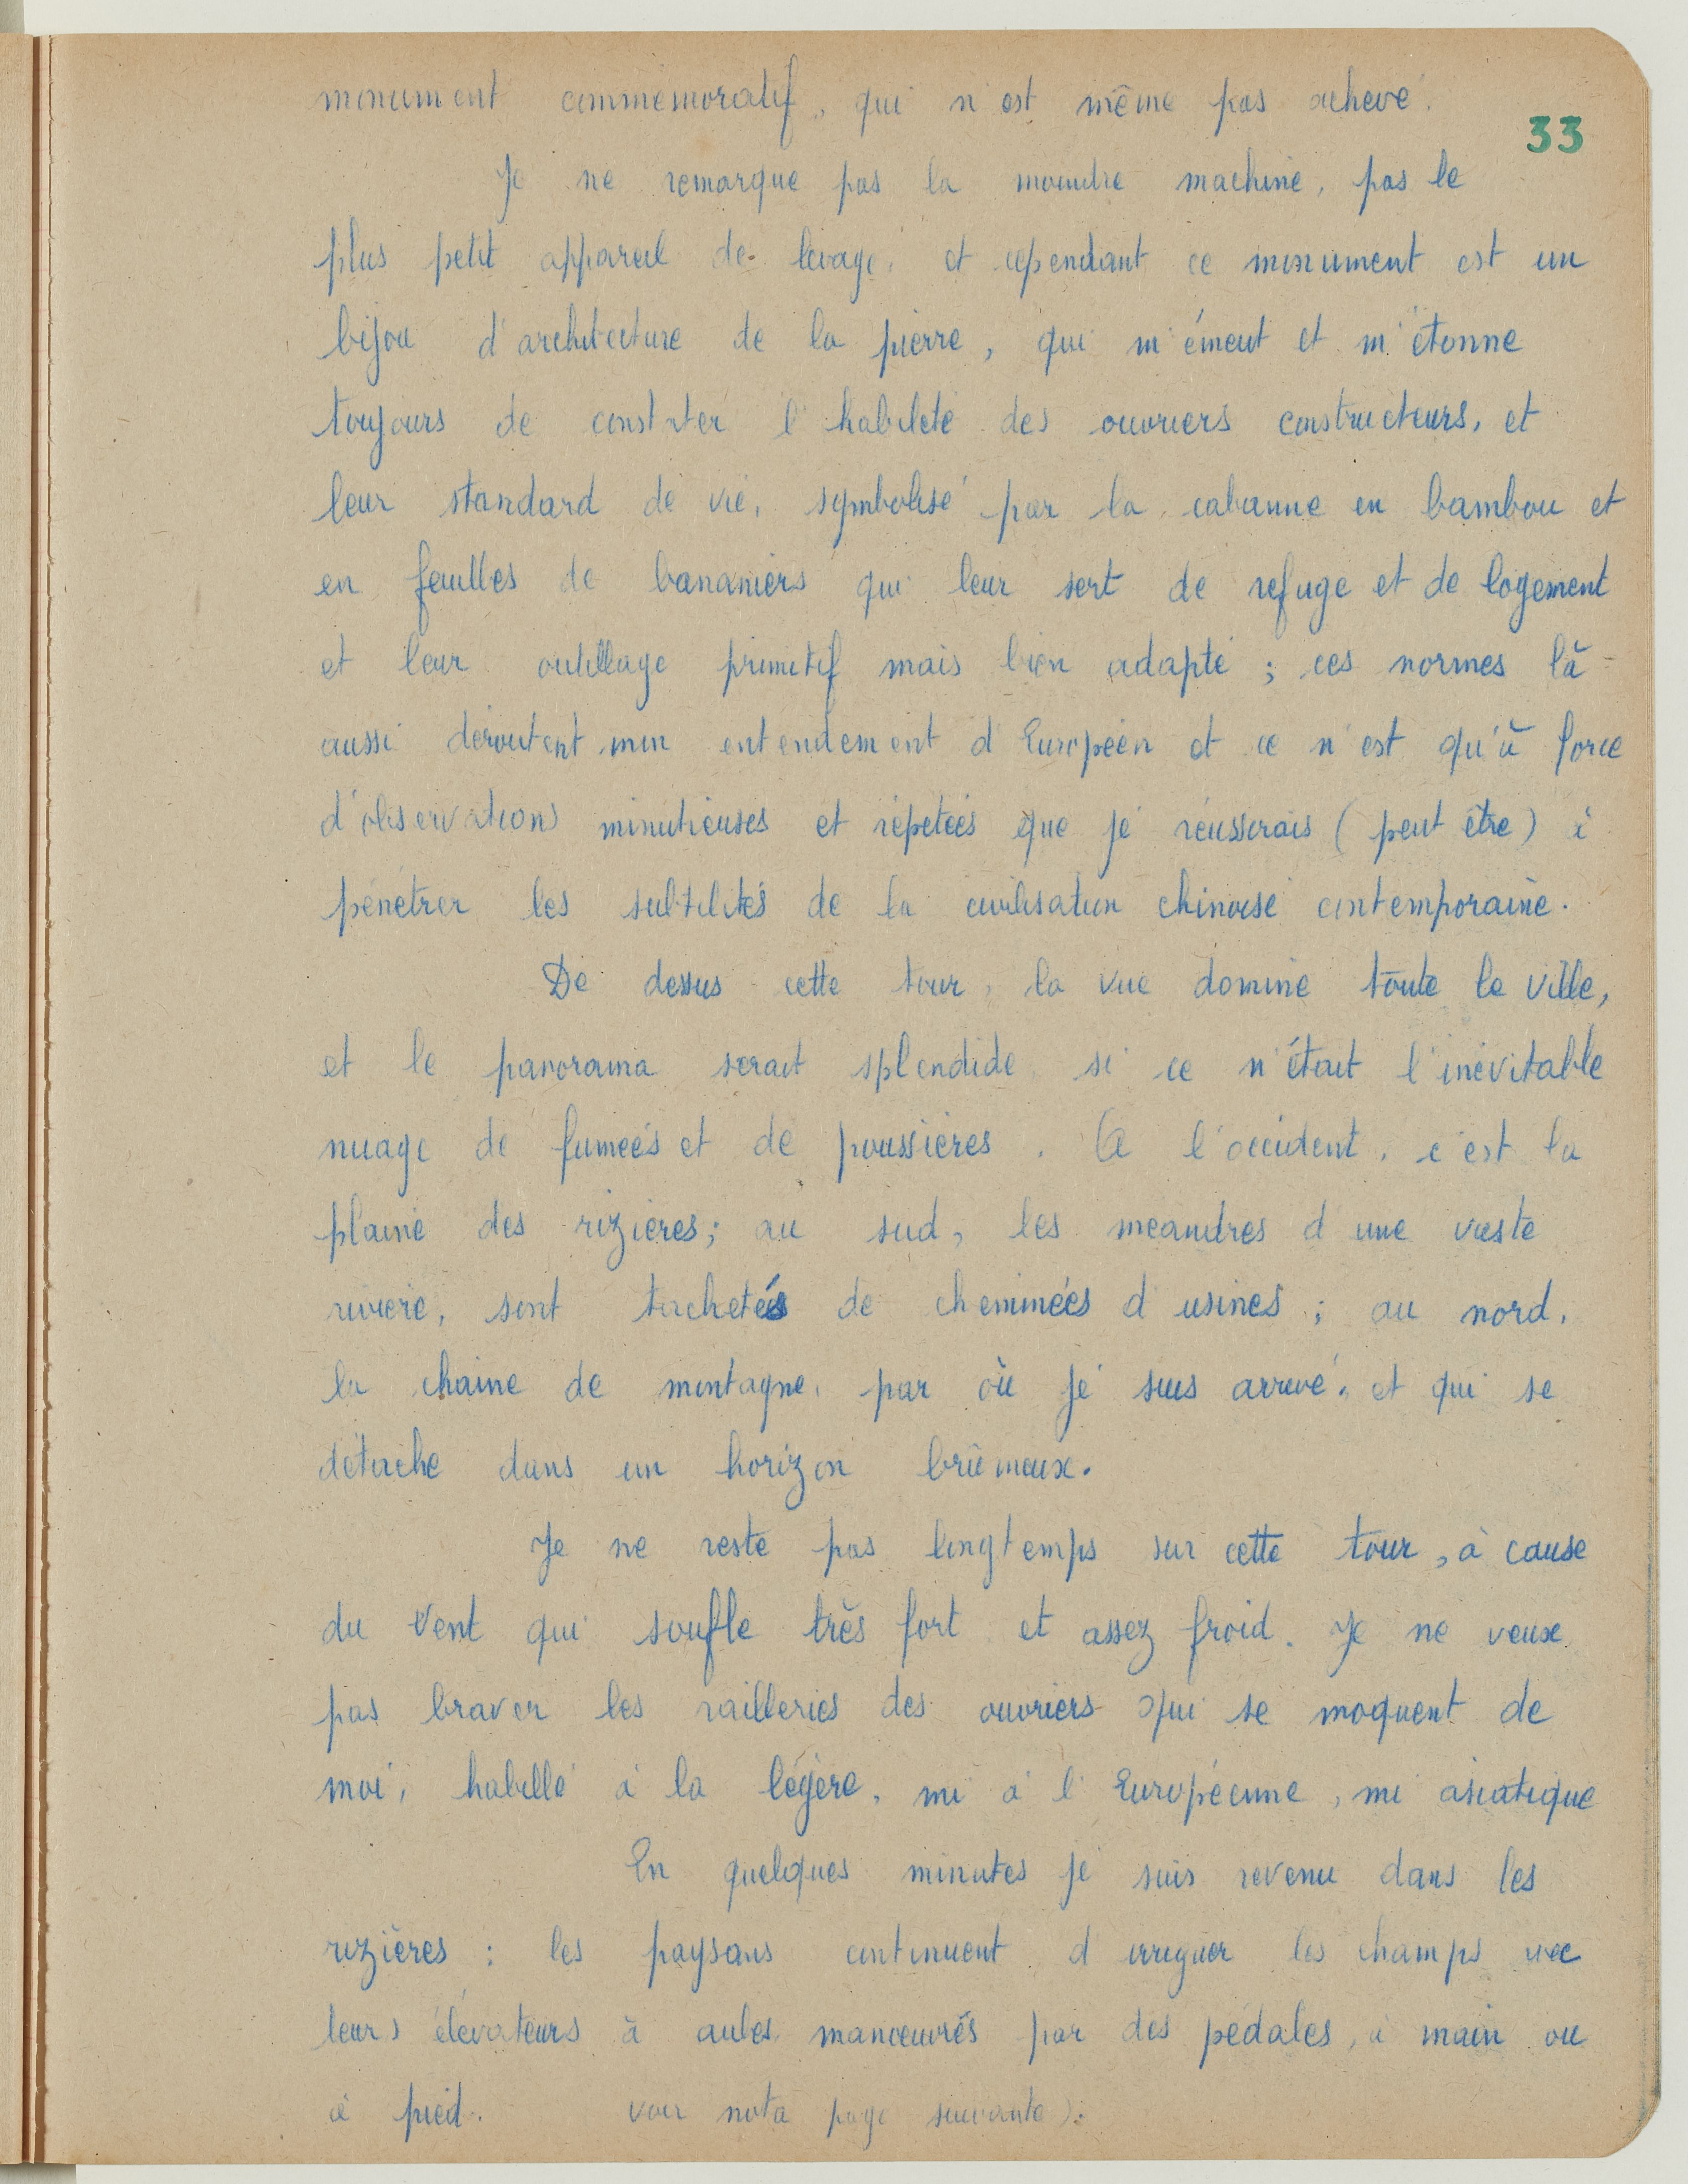 monument commemoratif, qui n'est même pas achevé.
33
Je ne remarque pas la moindre machine, pas le
plus petit appareil de levage, et cependant ce monument est un
bijou d'architecture de la pierre, qui m'émeut et m'étonne
toujours de constater l'habileté des ouvriers constructeurs, et
leur standard de vie, symbolisé par la cabanne en bambou et
en feuilles de bananiers qui leur sert de refuge et de logement
et leur outillage primitif mais bien adapté ; ces normes là-
aussi déroutent mon entendement d'Européen et ce n'est qu'à force
d'observations minutieuses et répetées que je réussirais (peut être) à
pénétrer les subtilités de la civilisation chinoise contemporaine.
De dessus cette tour, la vue domine toute la ville,
et le panorama serait splendide si ce n'était l'inévitable
nuage de fumées et de poussières. A l'occident, c'est la
plaine des rizières; au sud, les meandres d'une vaste
rivière, sont tachetés de cheminées d'usines ; au nord,
la chaine de montagne, par où je suis arrivé, et qui se
détache dans un horizon brûmeux.
Je ne reste pas longtemps sur cette tour, à cause
du vent qui soufle très fort et assez froid. Je ne veux
pas braver les railleries des ouvriers qui se moquent de
moi, habillé à la légère, mi à l'Européenne, mi asiatique
En quelques minutes je suis revenu dans les
rizières : les paysans continuent d'irriguer les champs avec
leurs élévateurs à aubes manœuvrés par des pédales, à main ou
à pied. voir nota page suivante).